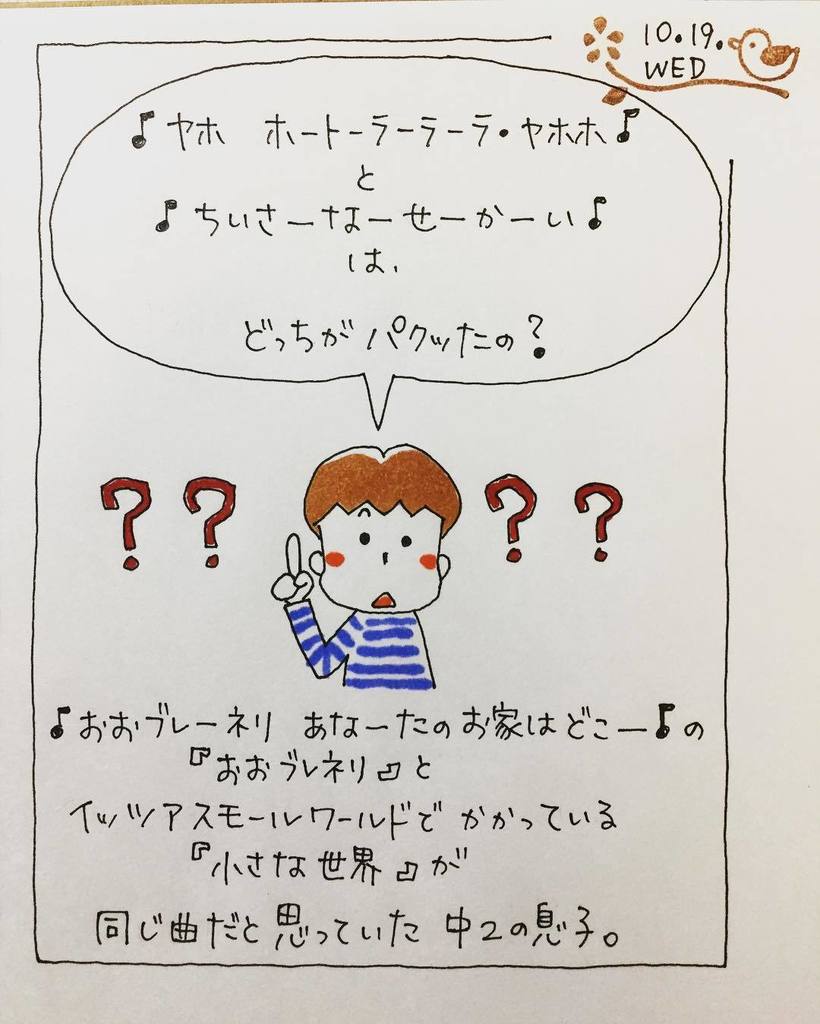 10.19.
WED
♪ヤホ ホートーラーラーラ・ヤホホ♪
と
♪ちいさーなーせーかーい♪
は、
どっちがパクッたの?
? ? ? ?
♪おおブレーネリ あなーたのお家はどこー♪の
『おおブレネリ』と
イッツアスモールワールドでかかっている
『小さな世界』が
同じ曲だと思っていた中2の息子。